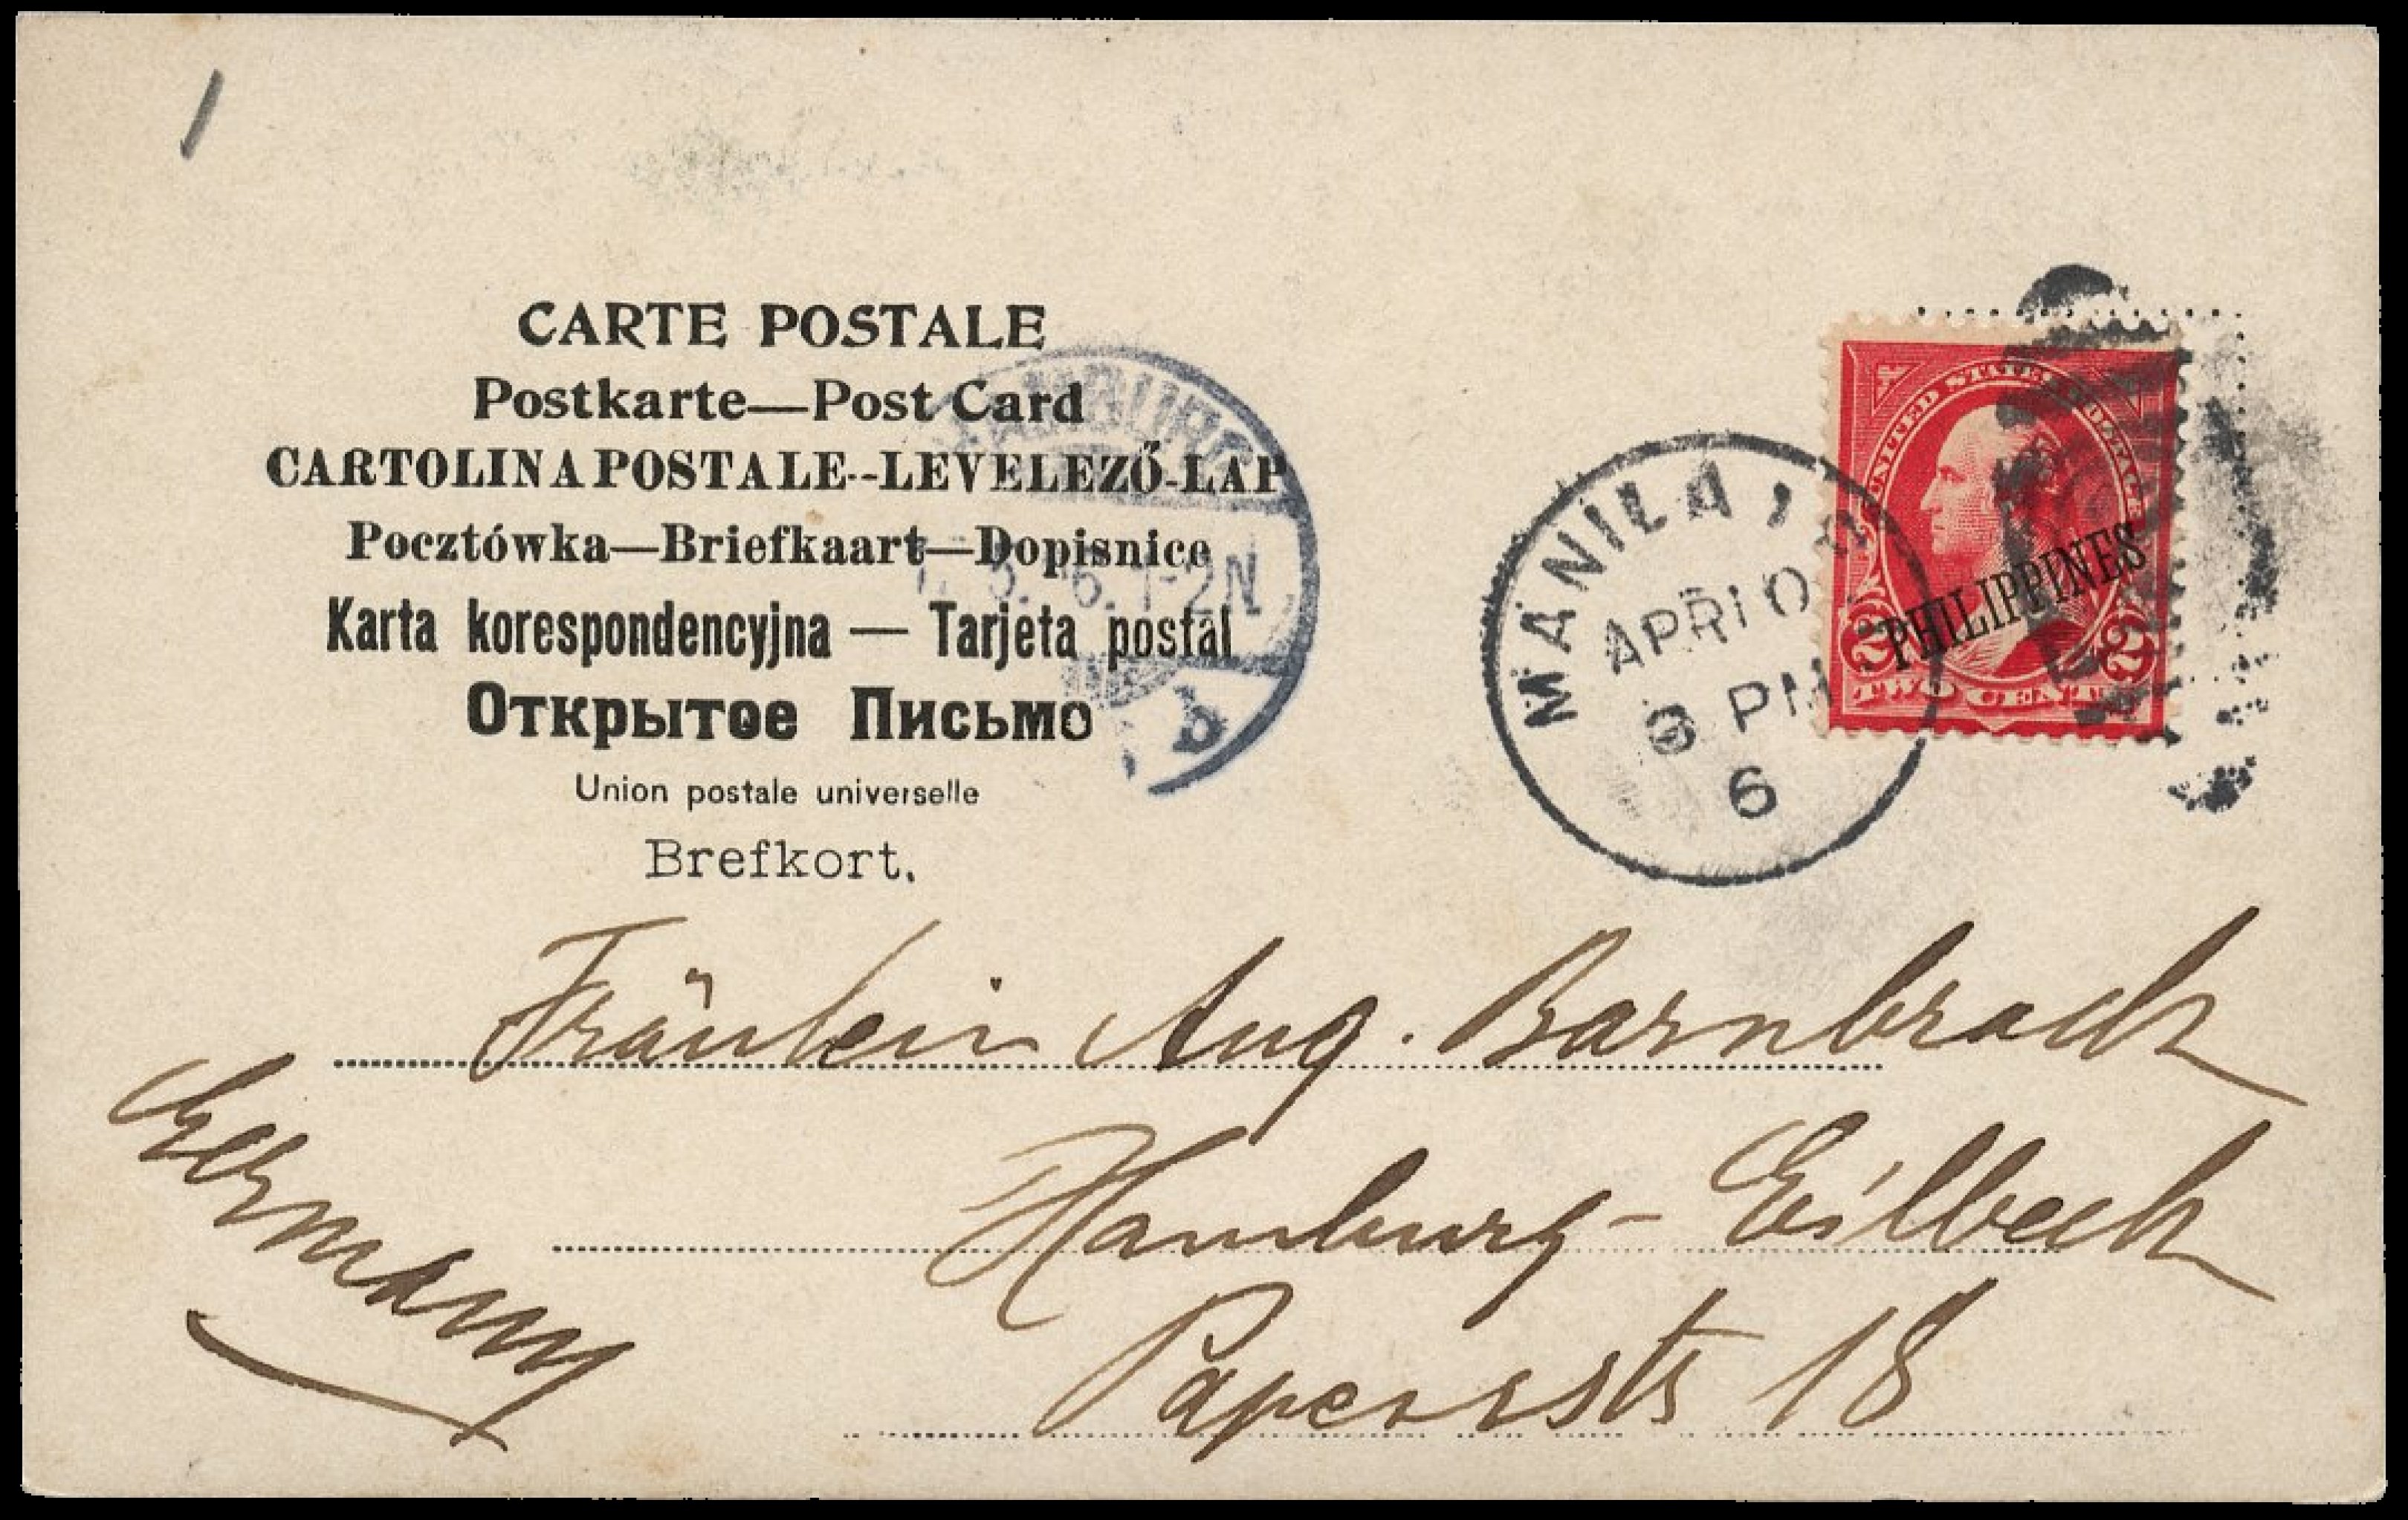 CARTE POSTALE
Postkarte—Post Card
CARTOLINA POSTALE--LEVELEZŐ-LAP
Pocztówka—Briefkaart—Dopisnice
Karta korespondencyjna — Tarjeta postal
Открытое Письмо
Union postale universelle
Brefkort.
HAMBURG
6. 1-2N
b
MANILA,
APR 10
3 PM
6
UNITED STATES POSTAGE
PHILIPPINES
2 2
TWO CENTS
Fräulein Aug. Barnbrock
Hamburg - Eilbeck
Papenstr 18
Germany